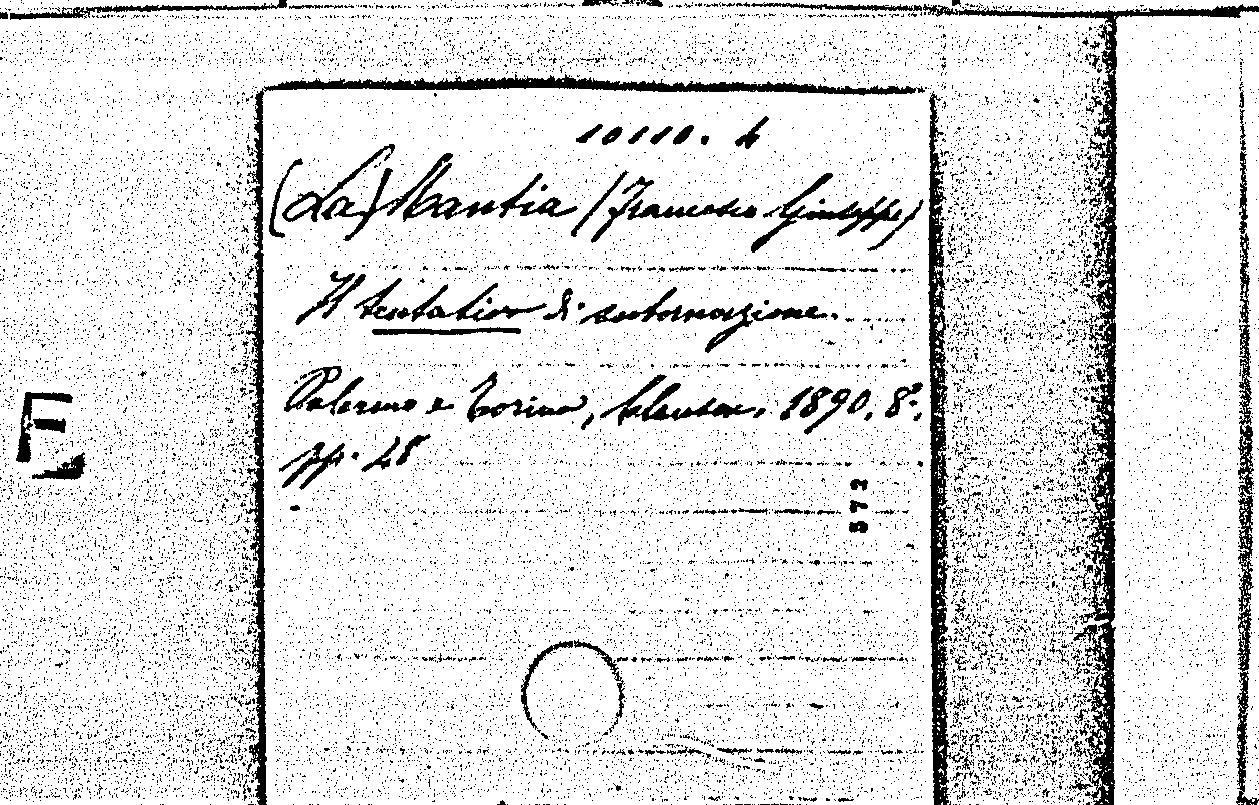 10110. 4
(La) Mantia (Francesco Giuseppe)
Il tentativo di subornazione.
Palermo e Torino, Clausen, 1890. 8º,
pp. 28
572
E